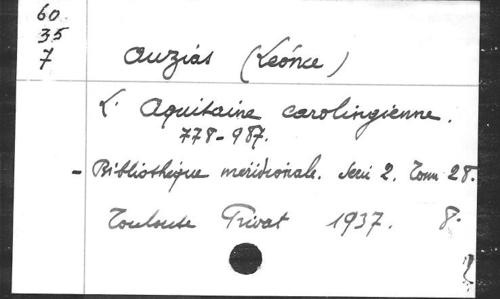 60
35
7
Auziás (Leónce)
L' Aquitaine carolingienne.
778-987.
- Bibliothèque méridionale. Serii 2. Tom 28.
Toulouse Privat 1937. 8.